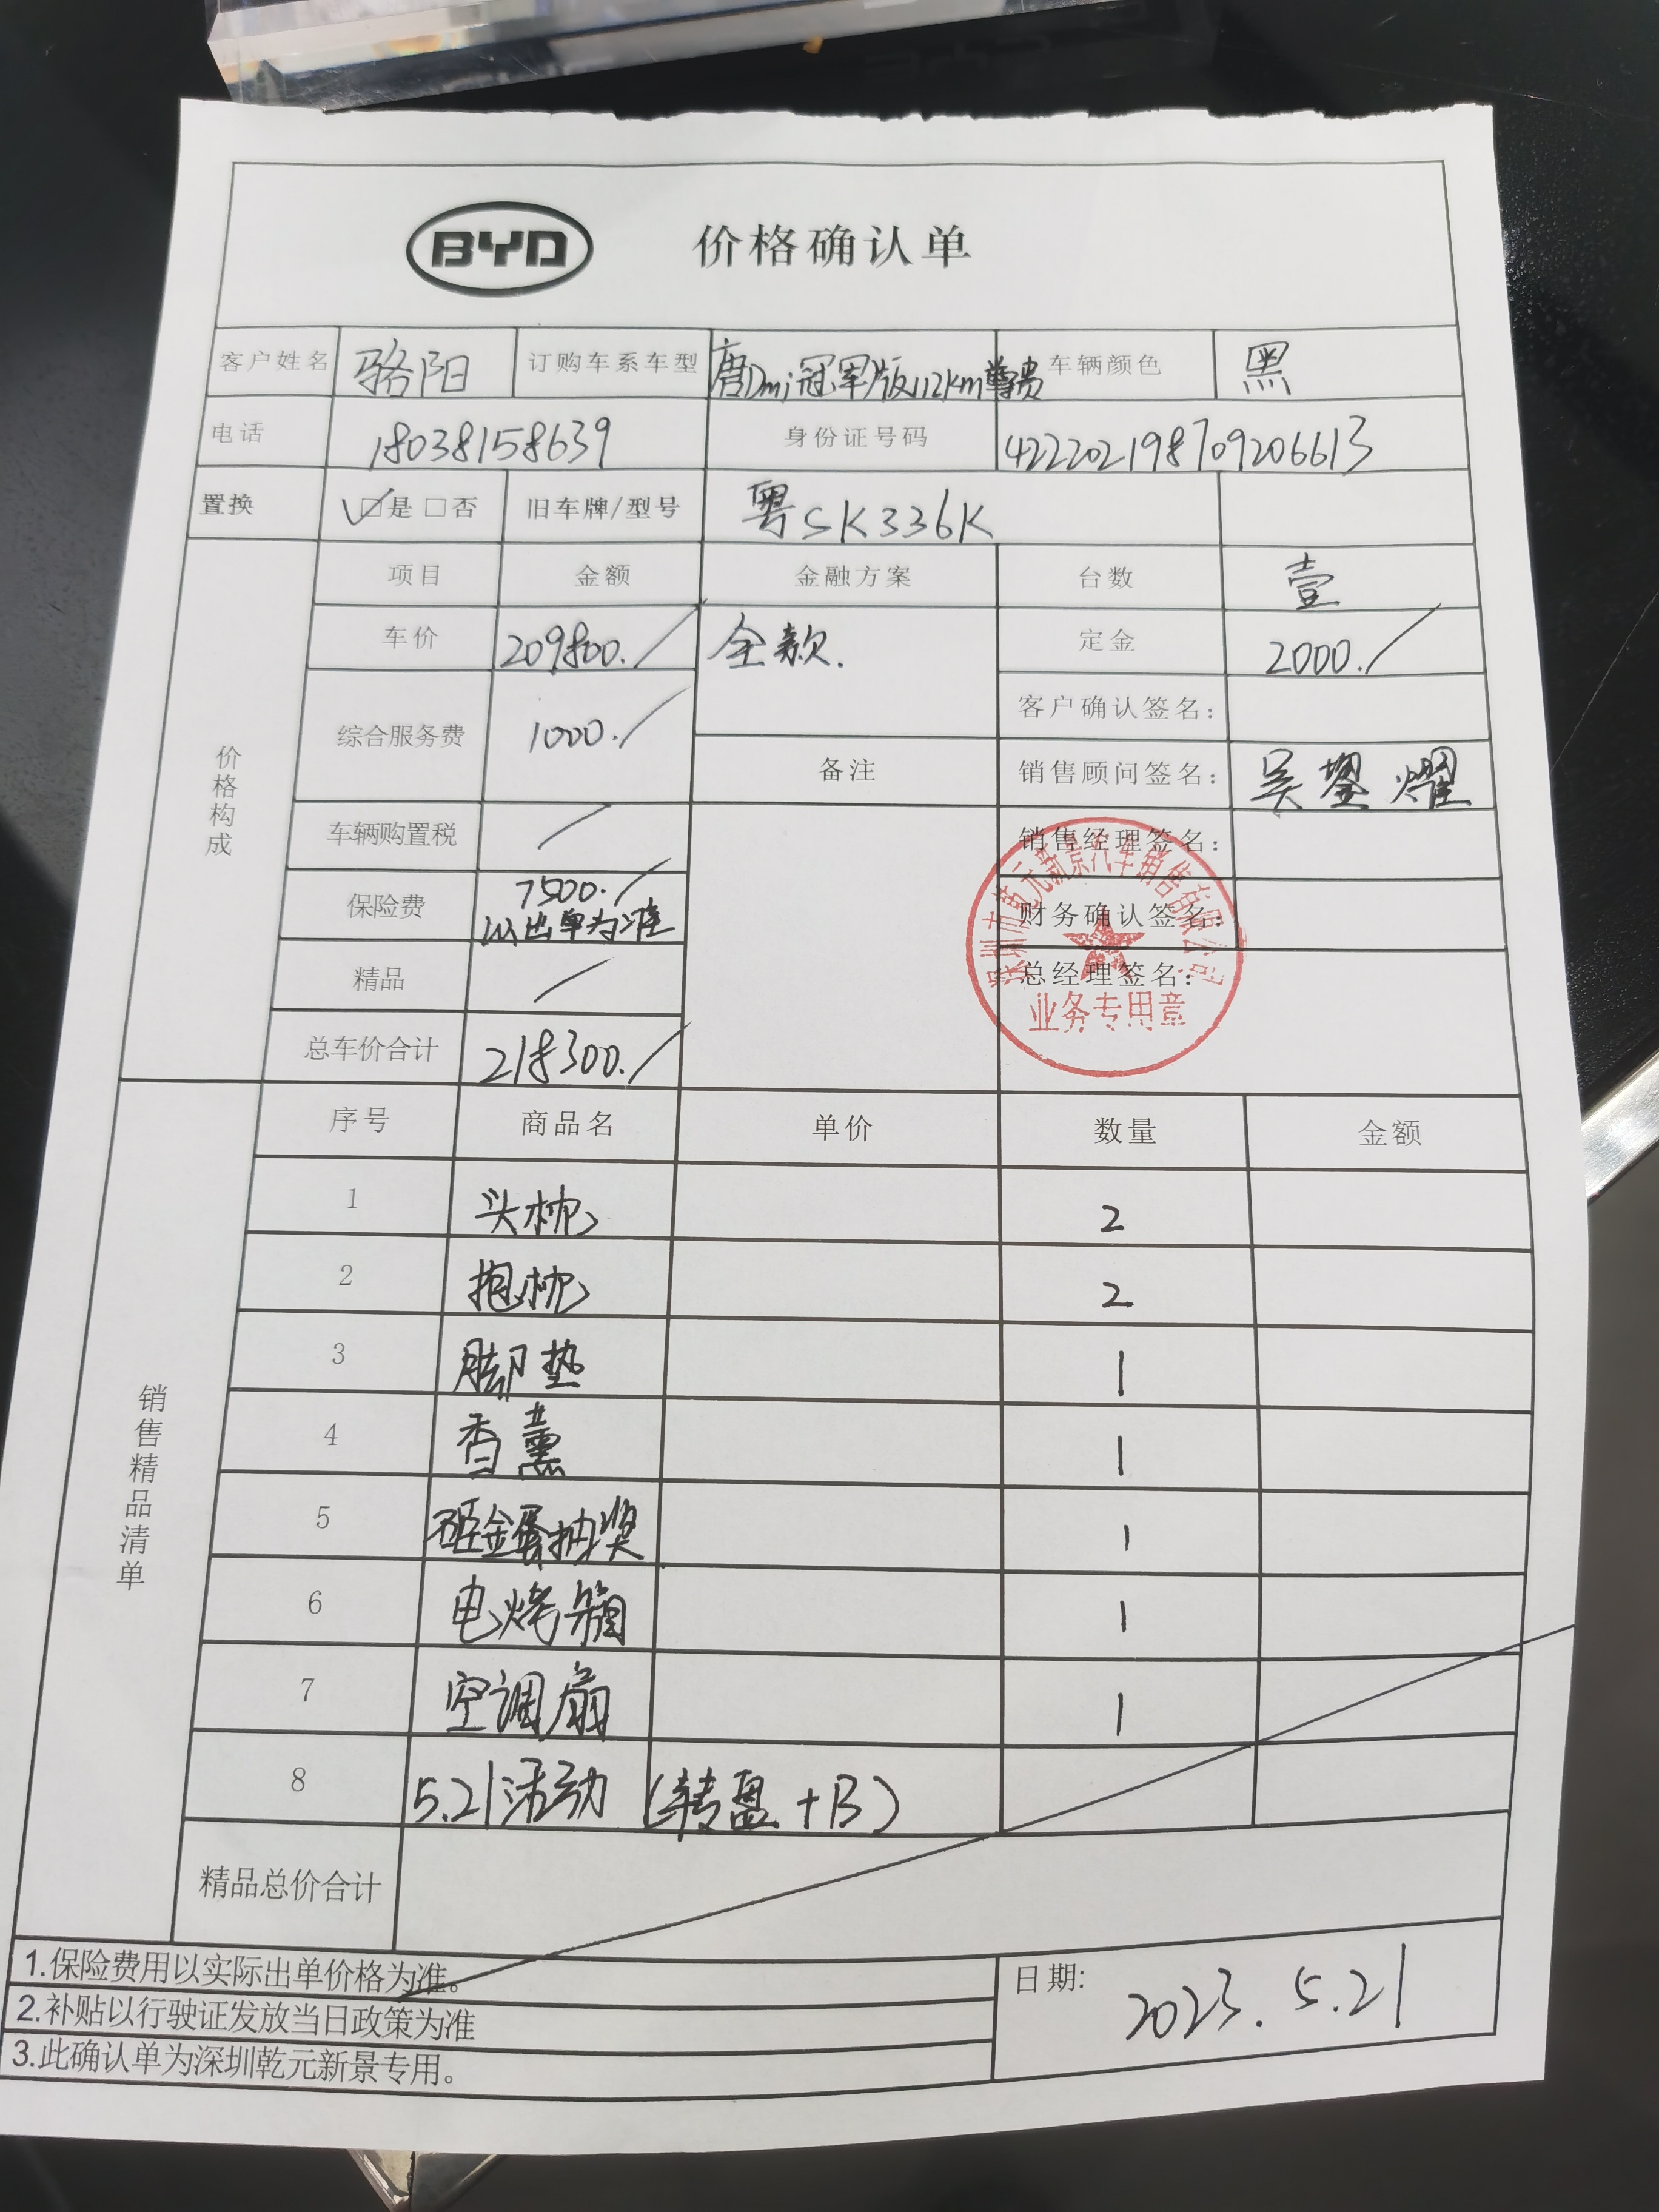 BYD 价格确认单
客户姓名 骆阳 订购车系车型 唐Dmi冠军版112km尊贵 车辆颜色 黑
电话 18038158639 身份证号码 422202198709206613
置换 ☑是 □否 旧车牌/型号 粤SK336K
价格构成
项目 金额 金融方案 台数 壹
车价 209800. 全款. 定金 2000.
综合服务费 1000. 客户确认签名:
备注 销售顾问签名: 吴 耀
车辆购置税 / 销售经理签名:
保险费 7500. 财务确认签名:
以出单为准
精品 / 总经理签名:
深圳市乾元新景汽车销售有限公司
业务专用章
总车价合计 218300.
销售精品清单
序号 商品名 单价 数量 金额
1 头枕 2
2 抱枕 2
3 脚垫 1
4 香薰 1
5 砸金蛋抽奖 1
6 电烤箱 1
7 空调扇 1
8 5.21活动 (转盘+B)
精品总价合计
1.保险费用以实际出单价格为准。
2.补贴以行驶证发放当日政策为准
3.此确认单为深圳乾元新景专用。
日期: 2023.5.21